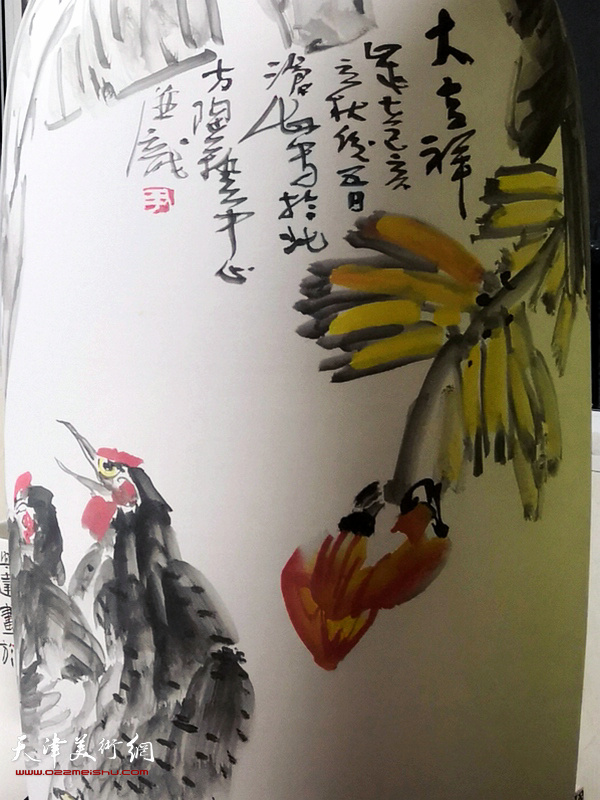 大吉祥
岁在己亥
立秋后五日
沧海写于北
方陶艺中心
天津美術網
www.022meishu.com